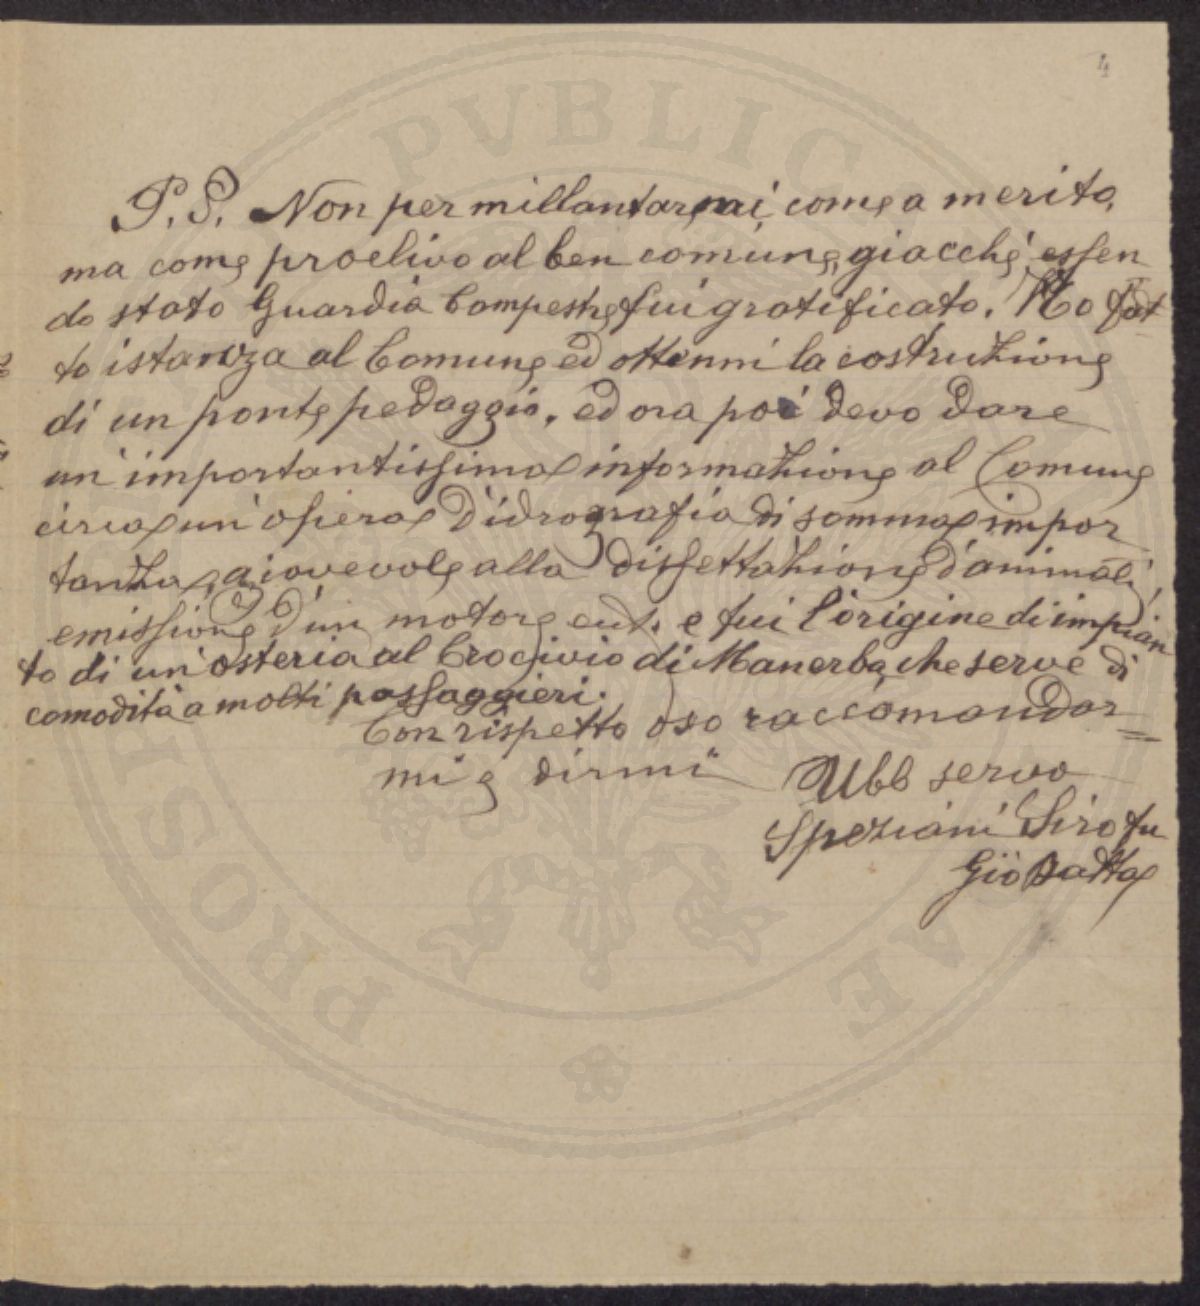 4
P.S. Non per millantarmi come a merito,
ma come proclivo al ben comune, giacchè essen
do stato Guardia Campestre fui gratificato. Ho fat=
to istanza al Comune ed ottenni la costruzione
di un ponte pedaggio, ed ora poi devo dare
un'importantissima informazione al Comune
circa un'opera d'idrografia di somma impor
tanza, giovevole alla dissettazione d'animali,
emissione d'un motore ect. e fui l'origine di impian
to di un'osteria al Crocivio di Manerba, che serve di
comodità a molti passaggieri.
Con rispetto oso raccomandar=
mi e dirmi
Ubb servo
Speziani Siro fu
Gio Batta
PROSPERITATI PVBLICAE AVGENDAE